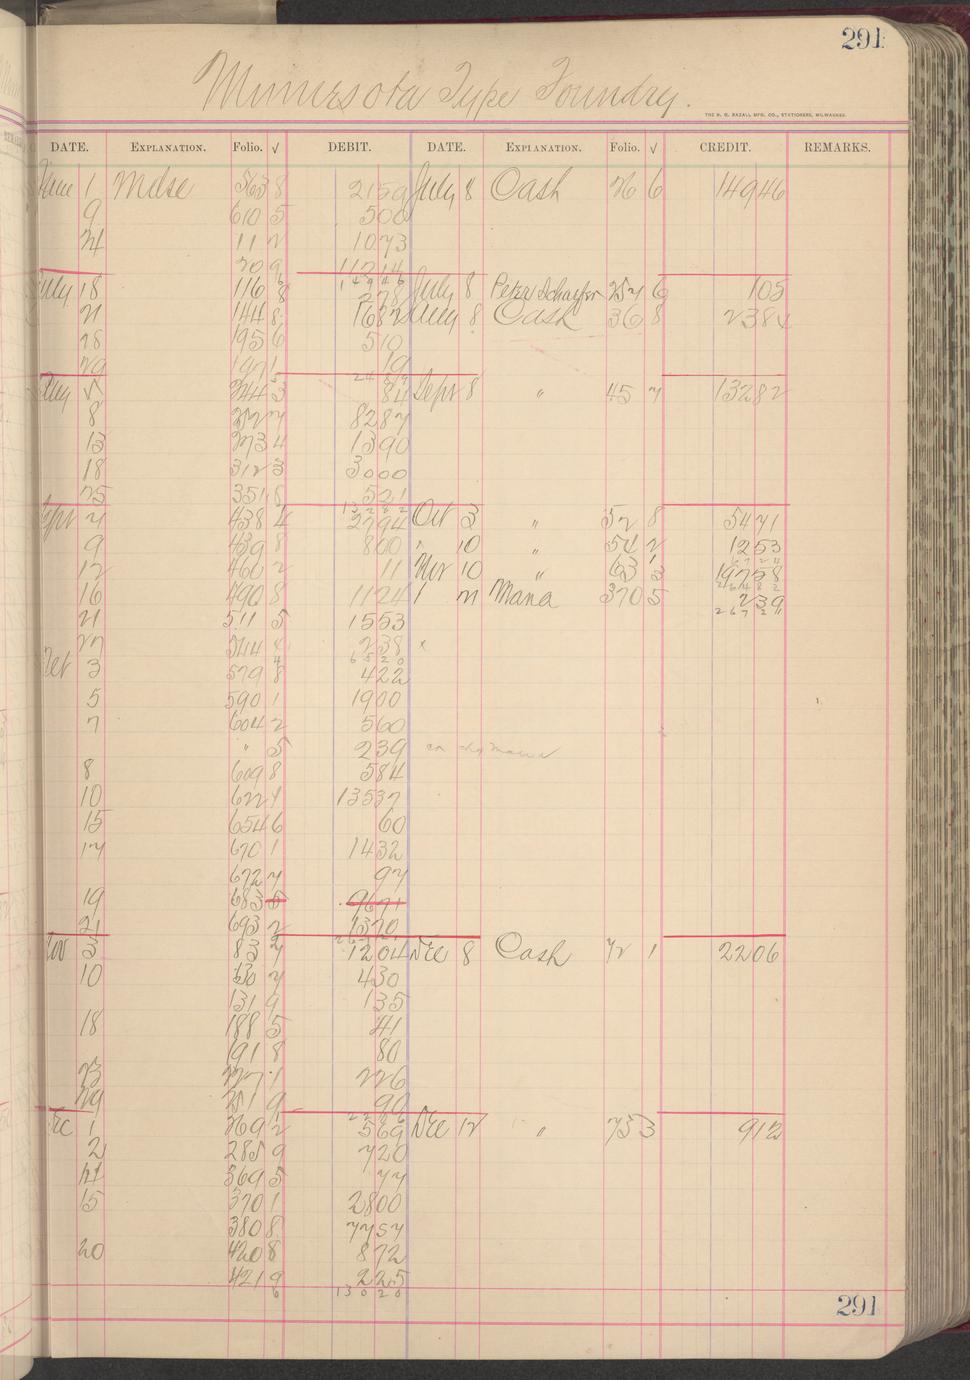 291
Minnesota Type Foundry.
THE H. G. RAZALL MFG. CO., STATIONERS, MILWAUKEE.
DATE. EXPLANATION. Folio. √ DEBIT. DATE. EXPLANATION. Folio. √ CREDIT. REMARKS.
June 1 Mdse 563 8 2159 July 8 Cash 26 6 14946
9 610 5 500
24 11 2 1073
20 9 11214
14946
July 18 116 8 278 July 8 Peter Schaefer 252 6 105
21 144 8 1682 Aug 8 Cash 36 8 2384
28 195 6 510
29 197 1 19
Aug 5 244 3 84 Sept 8 " 45 7 13282
8 252 7 8287
13 273 4 1390
18 312 3 3000
25 351 8 521
13282
Sept 7 438 4 2794 Oct 3 " 52 8 5471
9 439 8 800 " 10 " 54 2 1253
12 460 2 11 Nov 10 " 63 3 19758
16 490 8 1124 1 21 Mana 370 5 239
21 511 5 1553
27 544 8 238 x
6520
Oct 3 579 8 422
5 590 1 1900
7 604 2 560
" 5 239
8 609 8 584
10 622 9 13537
15 654 6 60
17 670 1 1432
672 7 97
19 683 5 9671
21 693 2 1320
Nov 3 83 7 1204 Dec 8 Cash 72 1 2206
10 130 7 430
131 9 135
18 188 5 41
191 8 80
23 227 1 226
29 251 9 90
2206
Dec 1 269 2 569 Dec 12 " 75 3 912
2 285 9 720
14 369 5 77
15 370 1 2800
380 8 7757
20 420 8 872
421 9 225
6 13020
291